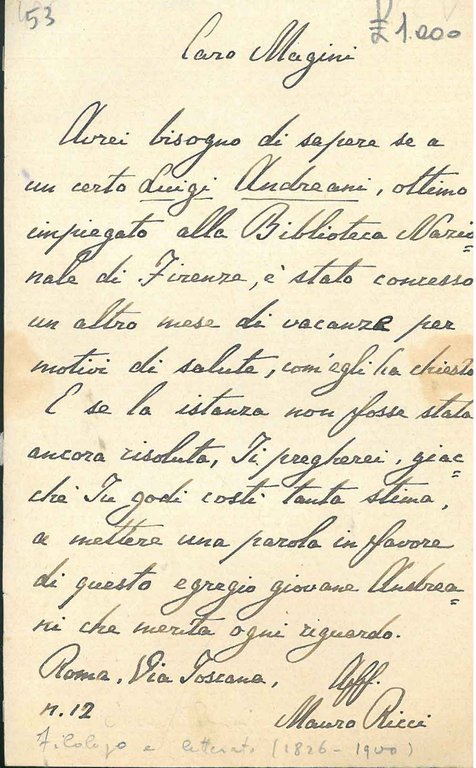 53
£ 1.000
Caro Magini
Avrei bisogno di sapere se a
un certo Luigi Andreani, ottimo
impiegato alla Biblioteca Nazio=
nale di Firenze, è stato concesso
un altro mese di vacanze per
motivi di salute, com'egli ha chiesto
E se la istanza non fosse stata
ancora risoluta, Ti pregherei, giac=
chè Tu godi costì tanta stima,
a mettere una parola in favore
di questo egregio giovane Andrea=
ni che merita ogni riguardo.
Roma, Via Toscana,
n. 12
Aff.
Mauro Ricci
Filologo e letterato (1826-1900)